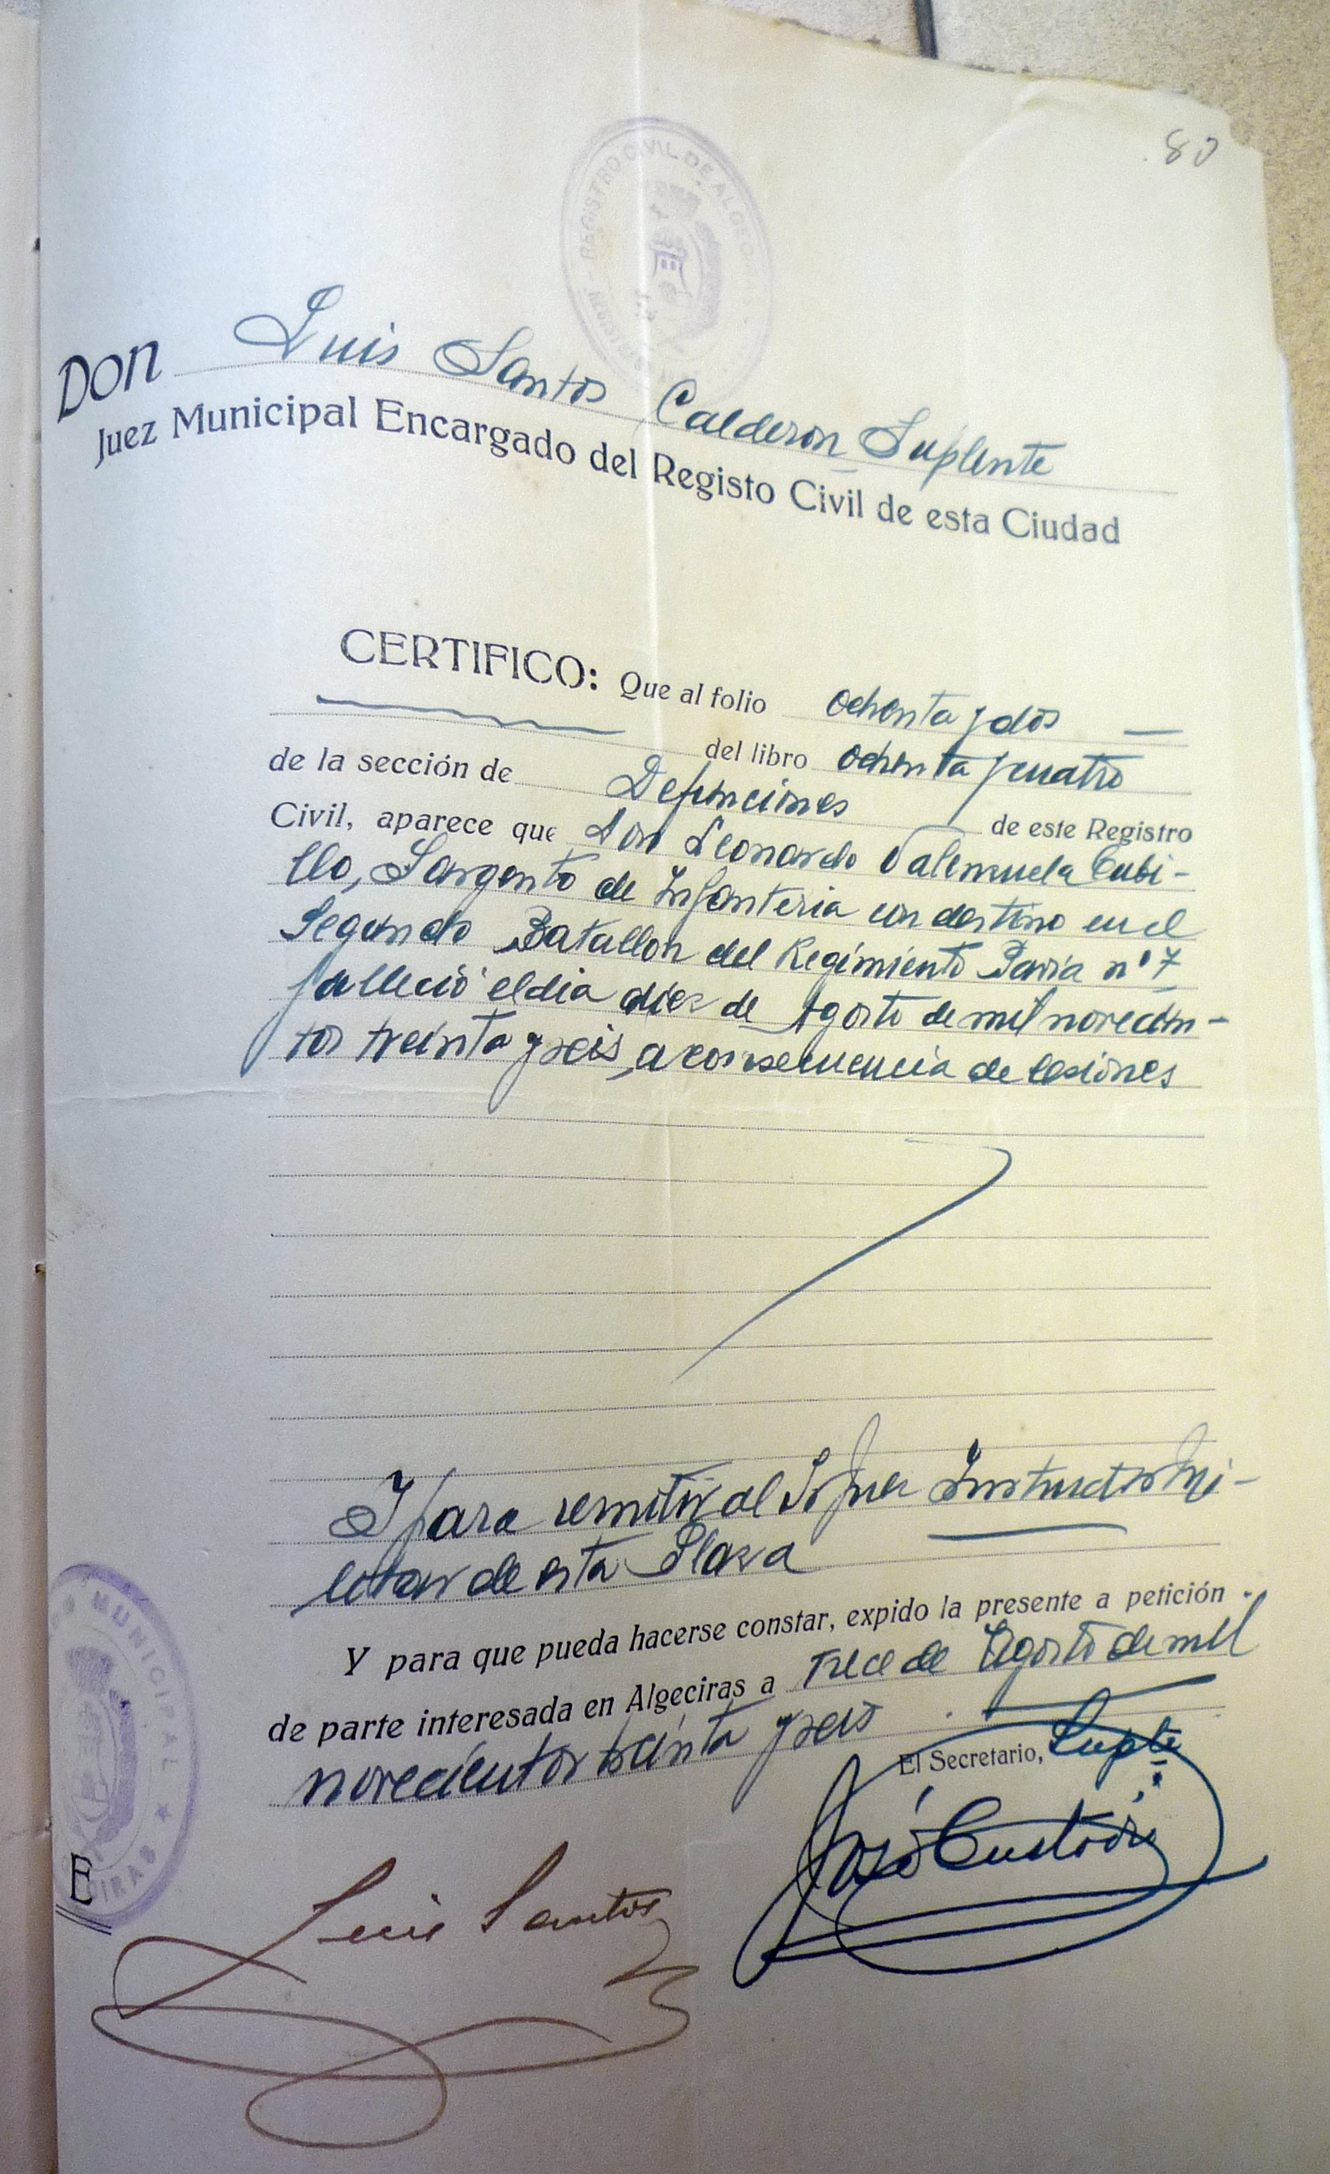 80
REGISTRO CIVIL DE ALGECI
Don Luis Santos Calderon Suplente
Juez Municipal Encargado del Registo Civil de esta Ciudad
CERTIFICO: Que al folio ochenta y dos
del libro ochenta y cuatro
de la sección de Defunciones de este Registro
Civil, aparece que Don Leonardo Valenzuela Cubi-
llo, Sargento de Infanteria con destino en el
Segundo Batallon del Regimiento Pavia nº 7
falleció el dia diez de Agosto de mil novecien-
tos treinta y seis, a consecuencia de lesiones
Y para remitir al Sr Juez Instructor Mi-
litar de esta Plaza
Y para que pueda hacerse constar, expido la presente a petición
de parte interesada en Algeciras a trece de Agosto de mil
novecientos treinta y seis
El Secretario, Suplte
José Custodio
Luis Santos
MUNICIPAL
CIRAS
E